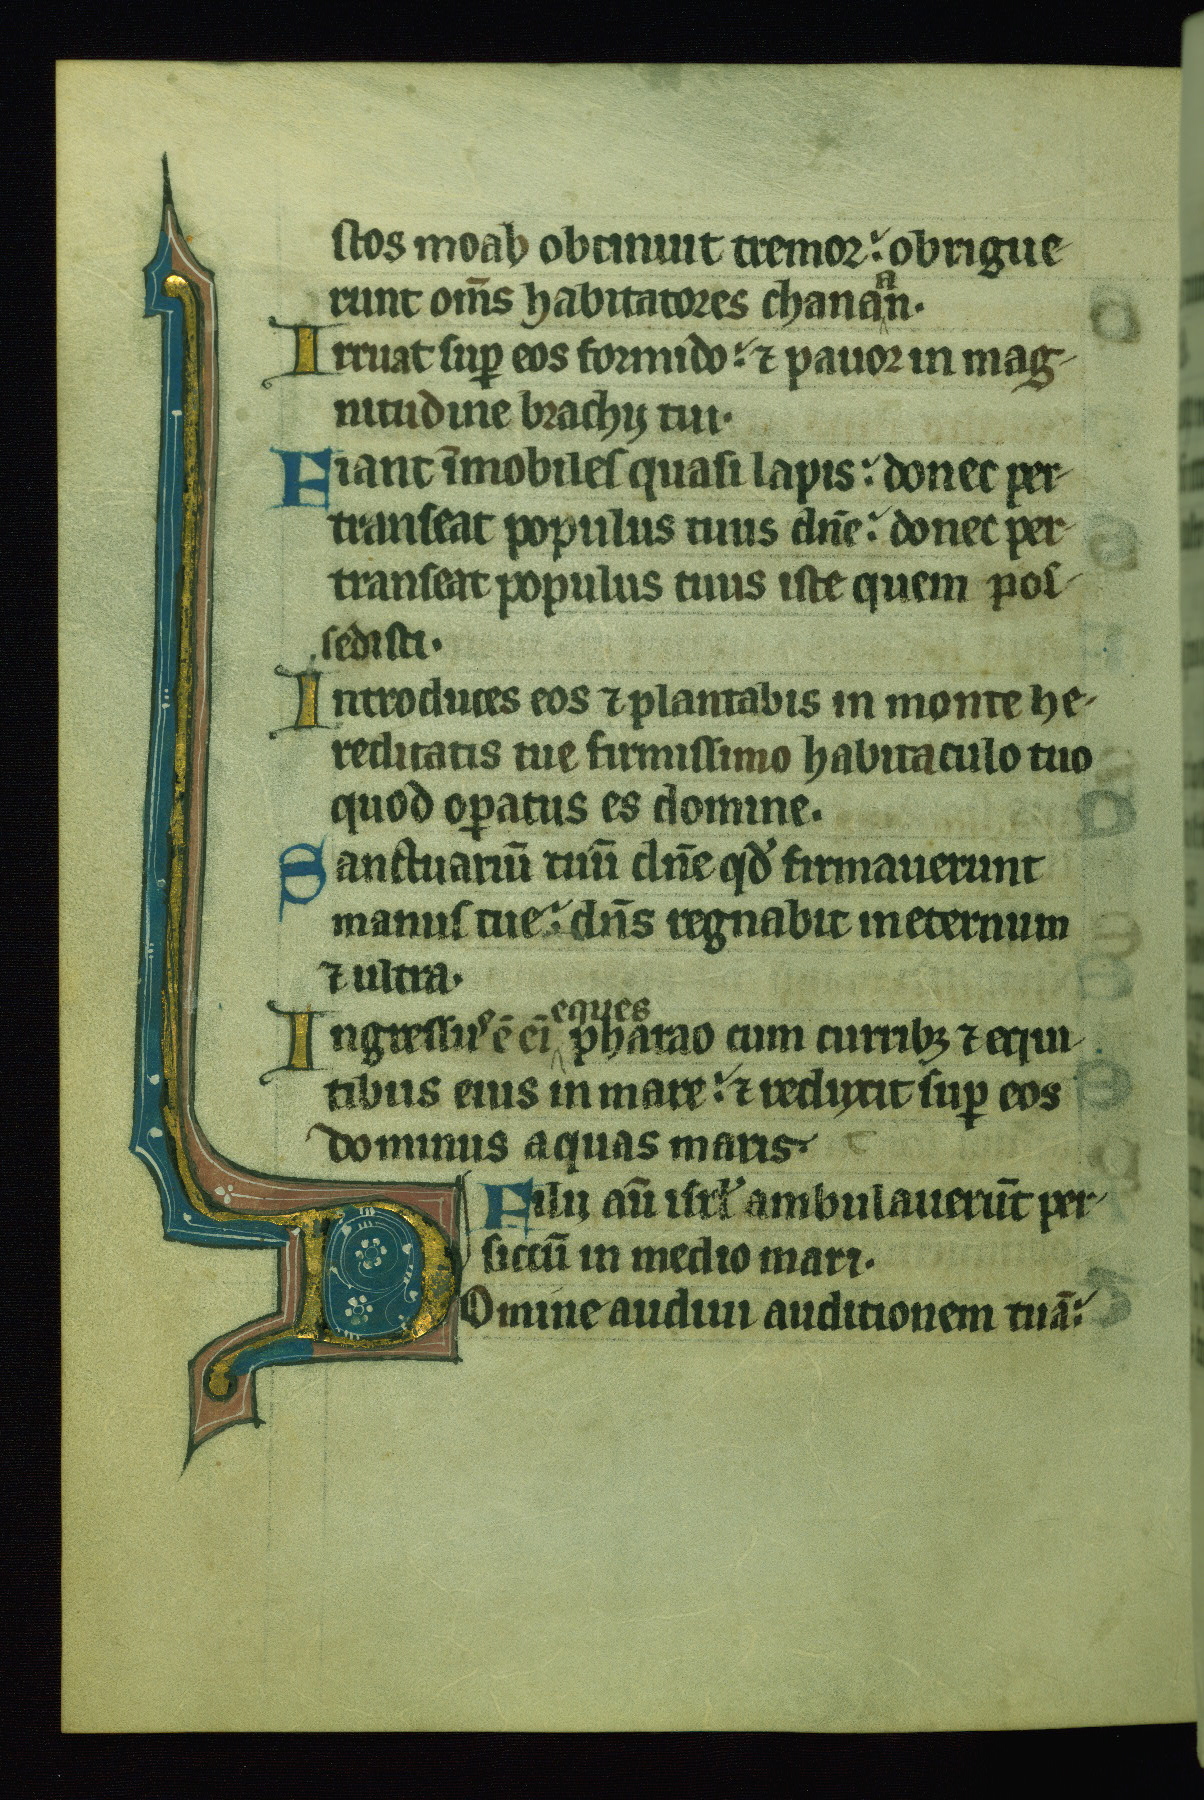 stos moab obtinuit tremor: obrigue
runt om̄s habitatores chanaan.
Irruat sup̱ eos formido: ⁊ pauor in mag-
nitudine brachij tui.
Fiant īmobiles quasi lapis: donec per-
transeat populus tuus dn̄e: donec per-
transeat populus tuus iste quem pos-
sedisti.
Introduces eos ⁊ plantabis in monte he-
reditatis tue firmissimo habitaculo tuo
quod op̱atus es domine.
Sanctuariū tuū dn̄e qd̓ firmauerunt
manus tue: dn̄s regnabit in eternum
⁊ ultra.
Ingressus ē eī eques pharao cum curribꝫ ⁊ equi-
tibus eius in mare: ⁊ reduxit sup̱ eos
dominus aquas maris.
Filij aū isrl̓ ambulauerūt per-
siccū in medio mari.
Domine audiui auditionem tuā: